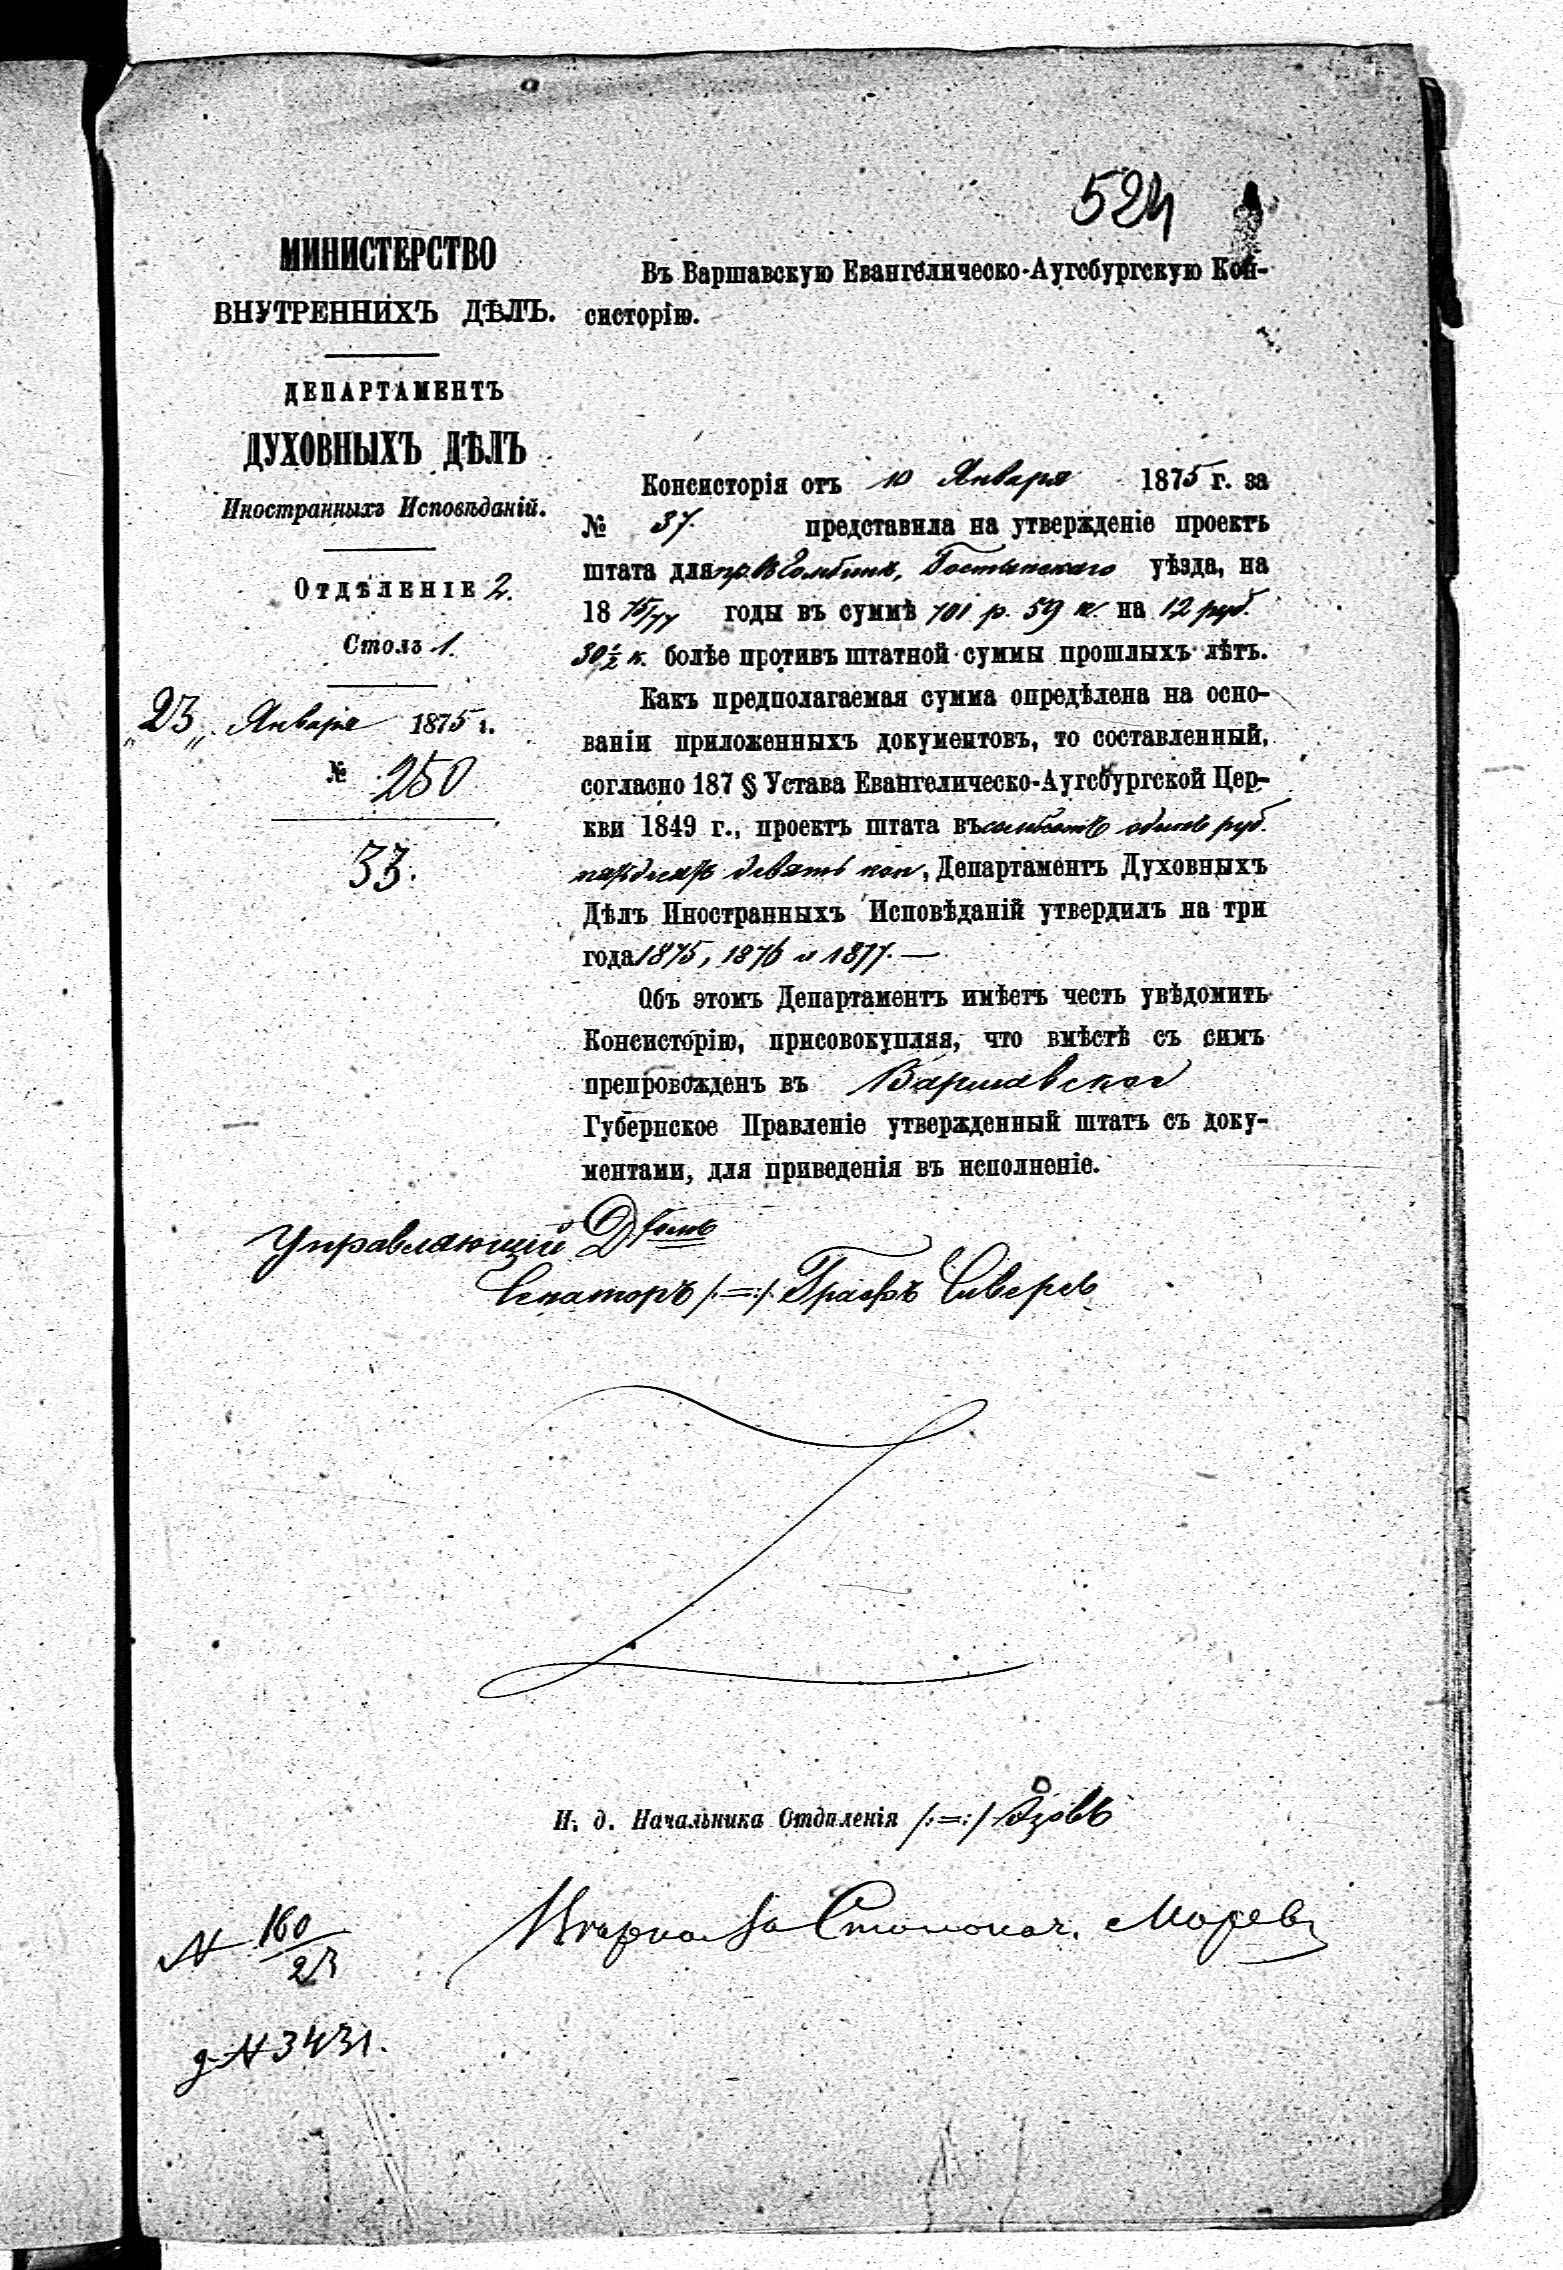 524
МИНИСТЕРСТВО
ВНУТРЕННИХЪ ДѢЛЪ.
ДЕПАРТАМЕНТЪ
ДУХОВНЫХЪ ДѢЛЪ
Иностранныхъ Исповѣданій.
Отдѣленіе 2.
Столъ 1.
„23„ Января 1875 г.
№ 250
33.
Въ Варшавскую Евангелическо-Аугсбургскую Кон-
систорію.
Консисторія отъ 10 Января 1875 г. за
№ 37. представила на утвержденіе проектъ
штата для пр. въ Гомбинѣ, Гостынскаго уѣзда, на
18 75/77 годы въ суммѣ 701 р. 59 к. на 12 руб.
30 1/2 к. болѣе противъ штатной суммы прошлыхъ лѣтъ.
Какъ предполагаемая сумма опредѣлена на осно-
ваніи приложенныхъ документовъ, то составленный,
согласно 187 § Устава Евангелическо-Аугсбургской Цер-
кви 1849 г., проектъ штата въ семьсотъ одинъ руб.
пятьдесятъ девять коп, Департаментъ Духовныхъ
Дѣлъ Иностранныхъ Исповѣданій утвердилъ на три
года 1875, 1876 и 1877. —
Объ этомъ Департаментъ имѣетъ честь увѣдомить
Консисторію, присовокупляя, что вмѣстѣ съ симъ
препровожденъ въ Варшавское
Губернское Правленіе утвержденный штатъ съ доку-
ментами, для приведенія въ исполненіе.
Управляющій Д-томъ
Сенаторъ /:=:/ Графъ Сиверсъ
И. д. Начальника Отдѣленія /:=:/ Азовъ
Столонач.
№ 160/23
д. № 3431.